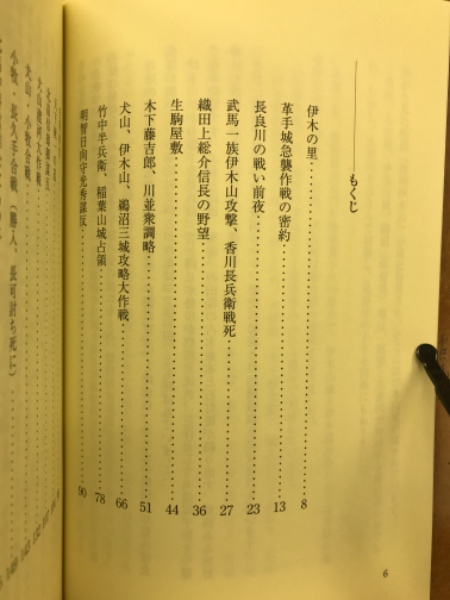 もくじ
伊木の里 8
革手城急襲作戦の密約 13
長良川の戦い前夜 23
武馬一族伊木山攻撃、香川長兵衛戦死 27
織田上総介信長の野望 36
生駒屋敷 44
木下藤吉郎、川並衆調略 51
犬山、伊木山、鵜沼三城攻略大作戦 66
竹中半兵衛、稲葉山城占領 78
明智日向守光秀謀反 90
犬山・小牧合戦
小牧・長久手合戦（勝入、長可討ち死に）
6